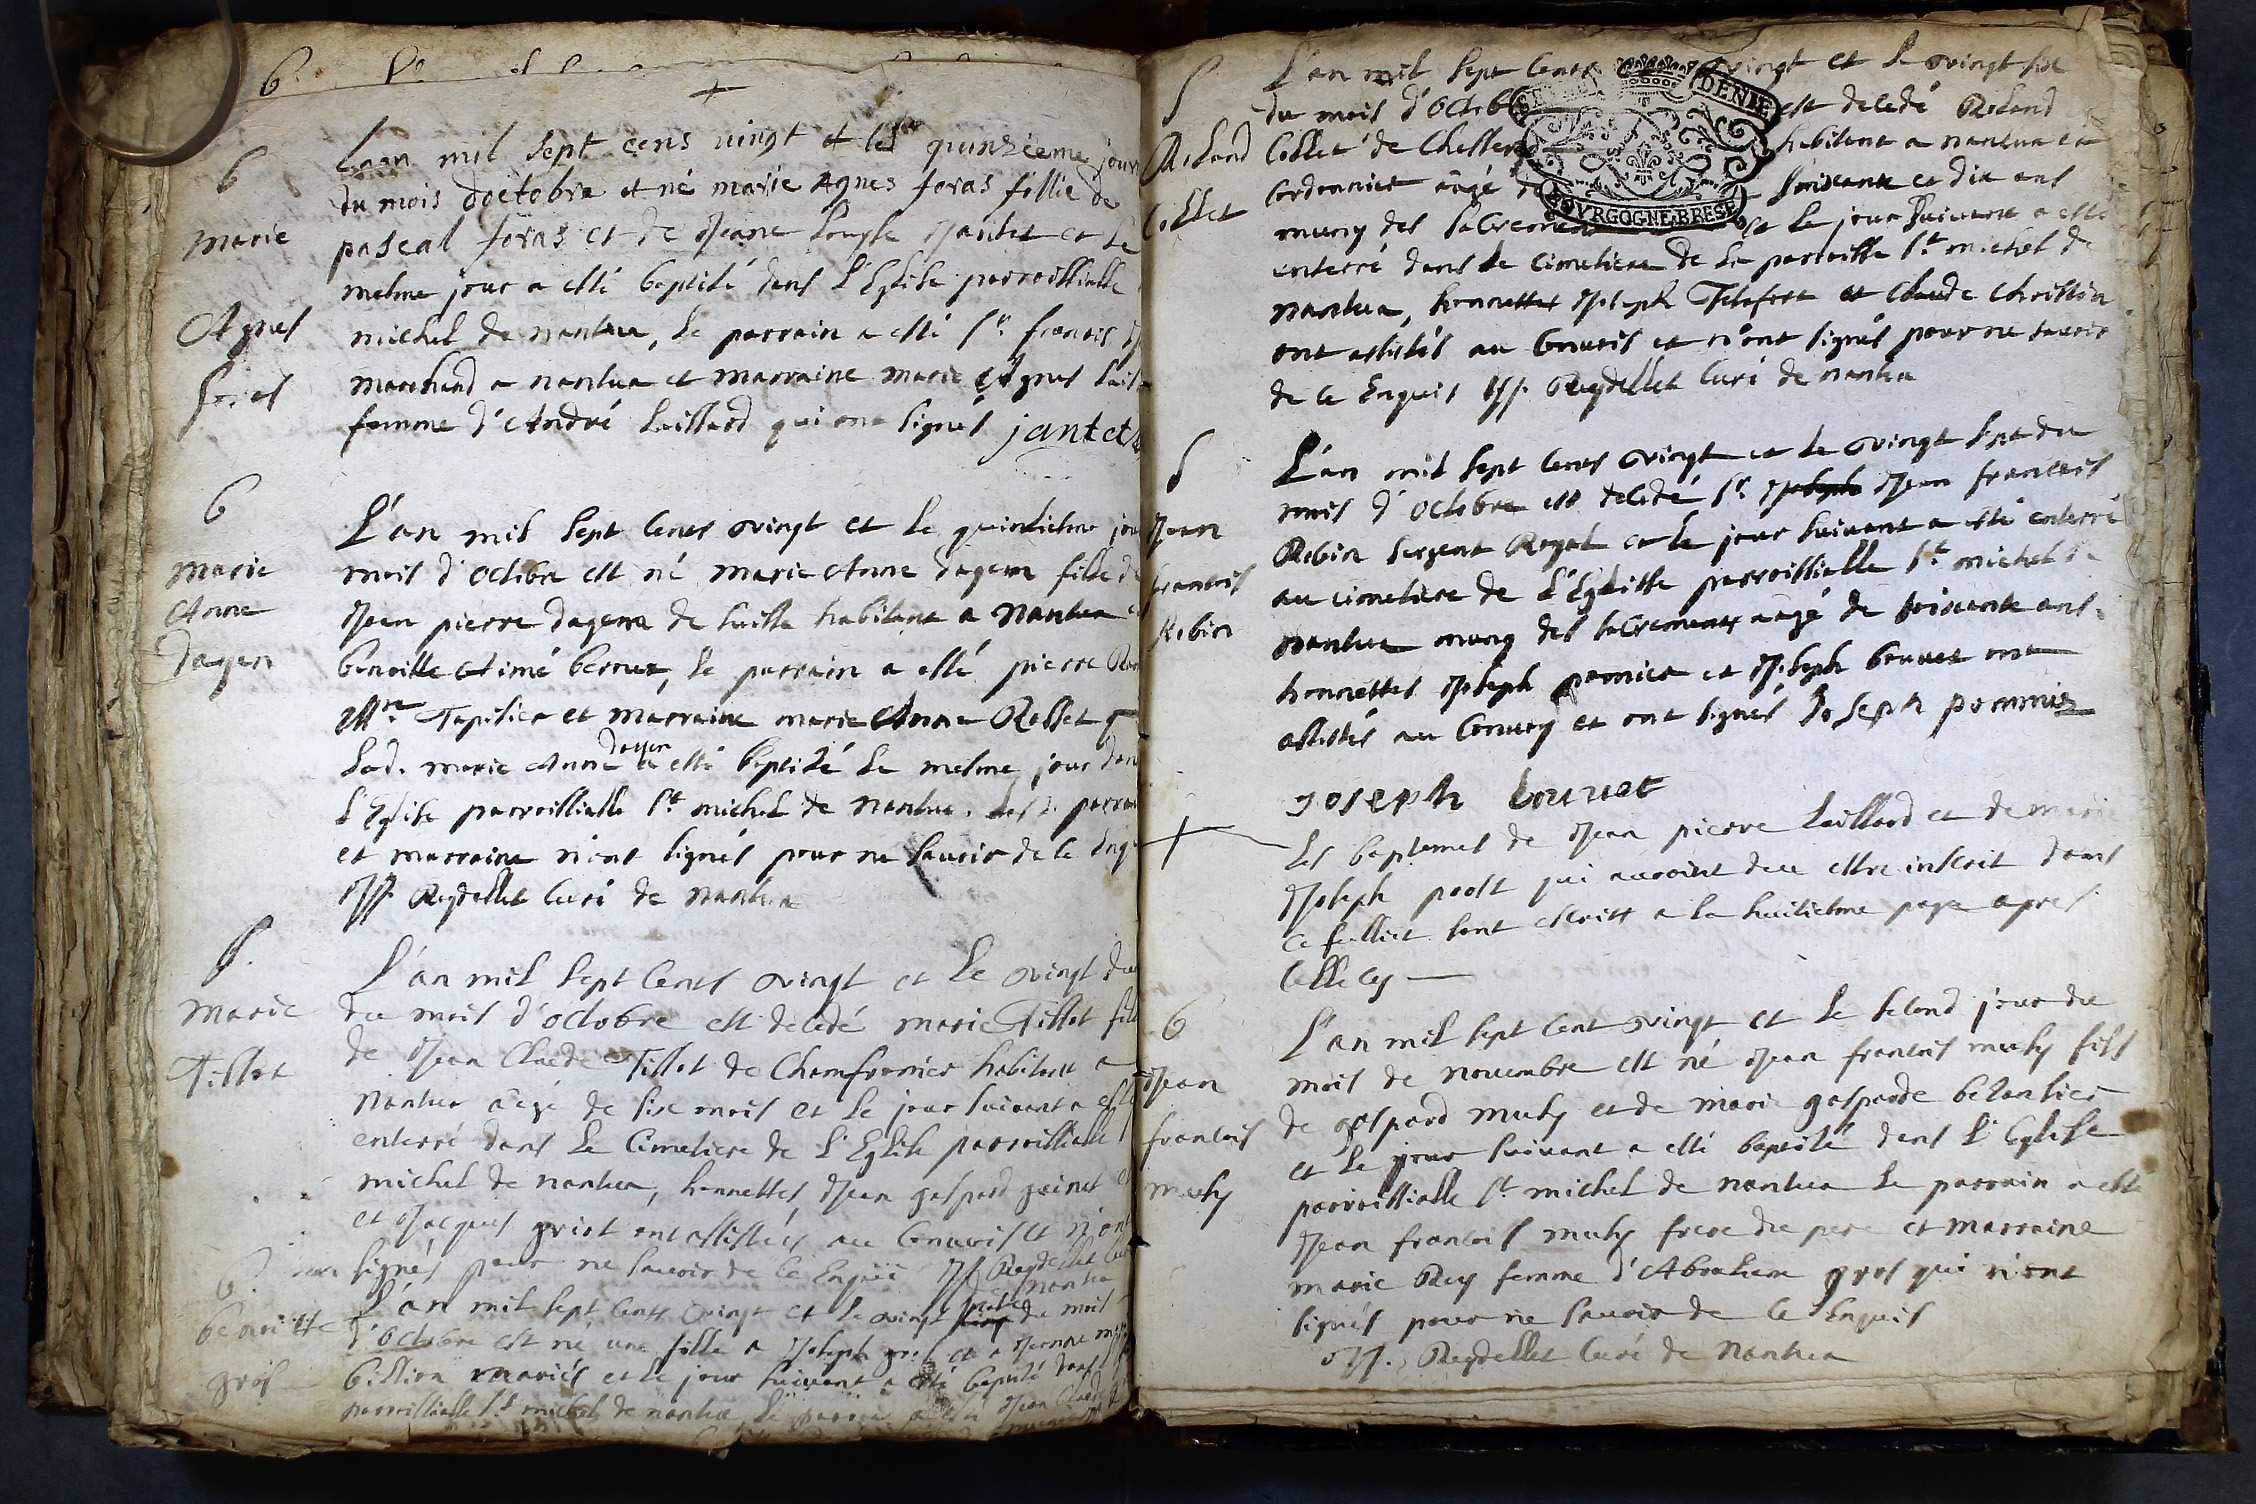 B
Marie
Agnes
foras
Lan mil sept cens vingt et les quinzieme jour
du mois doctobre et né marie Agnes foras fillie de
pascal foras et de Jeane Jantet et le
mesme jour a esté baptisé dans l'Eglise parroissialle
michel de nantua, le parrain a esté Sr. francois
marchand a nantua et marraine marie Agnes
femme d'André Laillard qui ont signés jantet
B
Marie
Anne
Dagen
L'an mil sept cents vingt et le quinziesme jou
mois d'octobre est né marie Anne Dagen fille de
Jean pierre Dagen de suisse habitant a Nantua et
benoitte Aimé le parrain a esté pierre
Mre. Tapisier et marraine marie Anne Rosset q
Lad. marie Anne dagen a esté baptisé le mesme jour dans
l'Eglise parroissialle St. michel de nantua. Lesd. parrain
et marraine n'ont signés pour ne sauoir de ce Enq
JJ. Reydellet Curé de nantua
S.
Marie
Tissot
L'an mil sept cents vingt et le vingt du
du mois d'octobre est decedé marie Tissot fille
de Jean Claude Tissot de Chamfromier habitant a
nantua aagé de six mois et le jour suivant a esté
enterré dans le Cimetiere de l'Eglise parroissialle
michel de nantua, honnettes, Jean gaspard guinet et
et Jacques griot ont assistés au Conuois et n'ont
signés pour ne sauoir de ce Enquis JJ Reydellet Curé
nantua
B.
benoitte
gros
L'an mil sept cents vingt et le vingt quatre du mois
d'octobre est né une fille a Joseph gros et a
billion mariés et le jour suivant a esté baptisé dans
parroissialle St. michel de nantua le parrain a esté Jean Claude
S
Roland
Collet
L'an mil sept cents vingt et le vingt six
du mois d'octobre est decedé Roland
Collet de habitant a nantua
Cordonnier aagé de soixante et dix ans
muny des sacrements et le jour suivant a esté
enterré dans le cimetiere de la parroisse St. michel de
nantua, honnettes Joseph et Claude
ont assistés au Conuois et n'ont signés pour ne sauoir
de ce Enquis JJ. Reydellet Curé de nantua
S
Jean
francois
Robin
L'an mil sept cents vingt et le vingt sept du
mois d'octobre est decedé Sr. Joseph Jean francois
Robin sergent Royal et le jour suivant a esté enterré
au cimetiere de l'Eglisse parroissialle St. michel de
nantua muny des sacrements aagé de soixante ans.
honnettes Joseph pomier et Joseph bouuet ont
assistés au Conuoy et ont signés Joseph pommier
joseph bouuet
Les baptemes de Jean pierre Laillard et de marie
Joseph prost qui auroint deu estre inscrit dans
ce feulliet sont escritt a la huitiesme page apres
celle cy
B
Jean
francois
muhy
L'an mil sept cent vingt et le second jour du
mois de nouembre est né Jean francois muhy fils
de gaspard muhy et de marie gasparde
et le jour suivant a esté baptisé dans l'Eglise
parroissialle St. michel de nantua le parrain a esté
Jean francois muhy frere du pere et marraine
marie Rey femme d'Abraham gros qui n'ont
signés pour ne sauoir de ce Enquis
JJ. Reydellet Curé de nantua
DENIE
BOVRGOGNE.BRESE